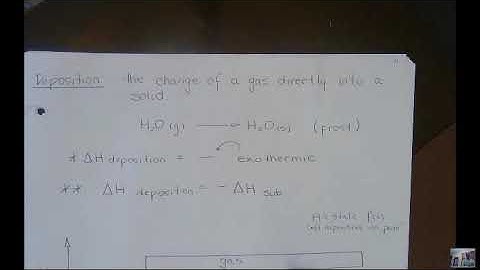 Deposition: The change of a gas directly into a
solid.
H₂O(g) → H₂O(s) (frost)
* ΔH deposition = − exothermic
** ΔH deposition = − ΔH sub
gas